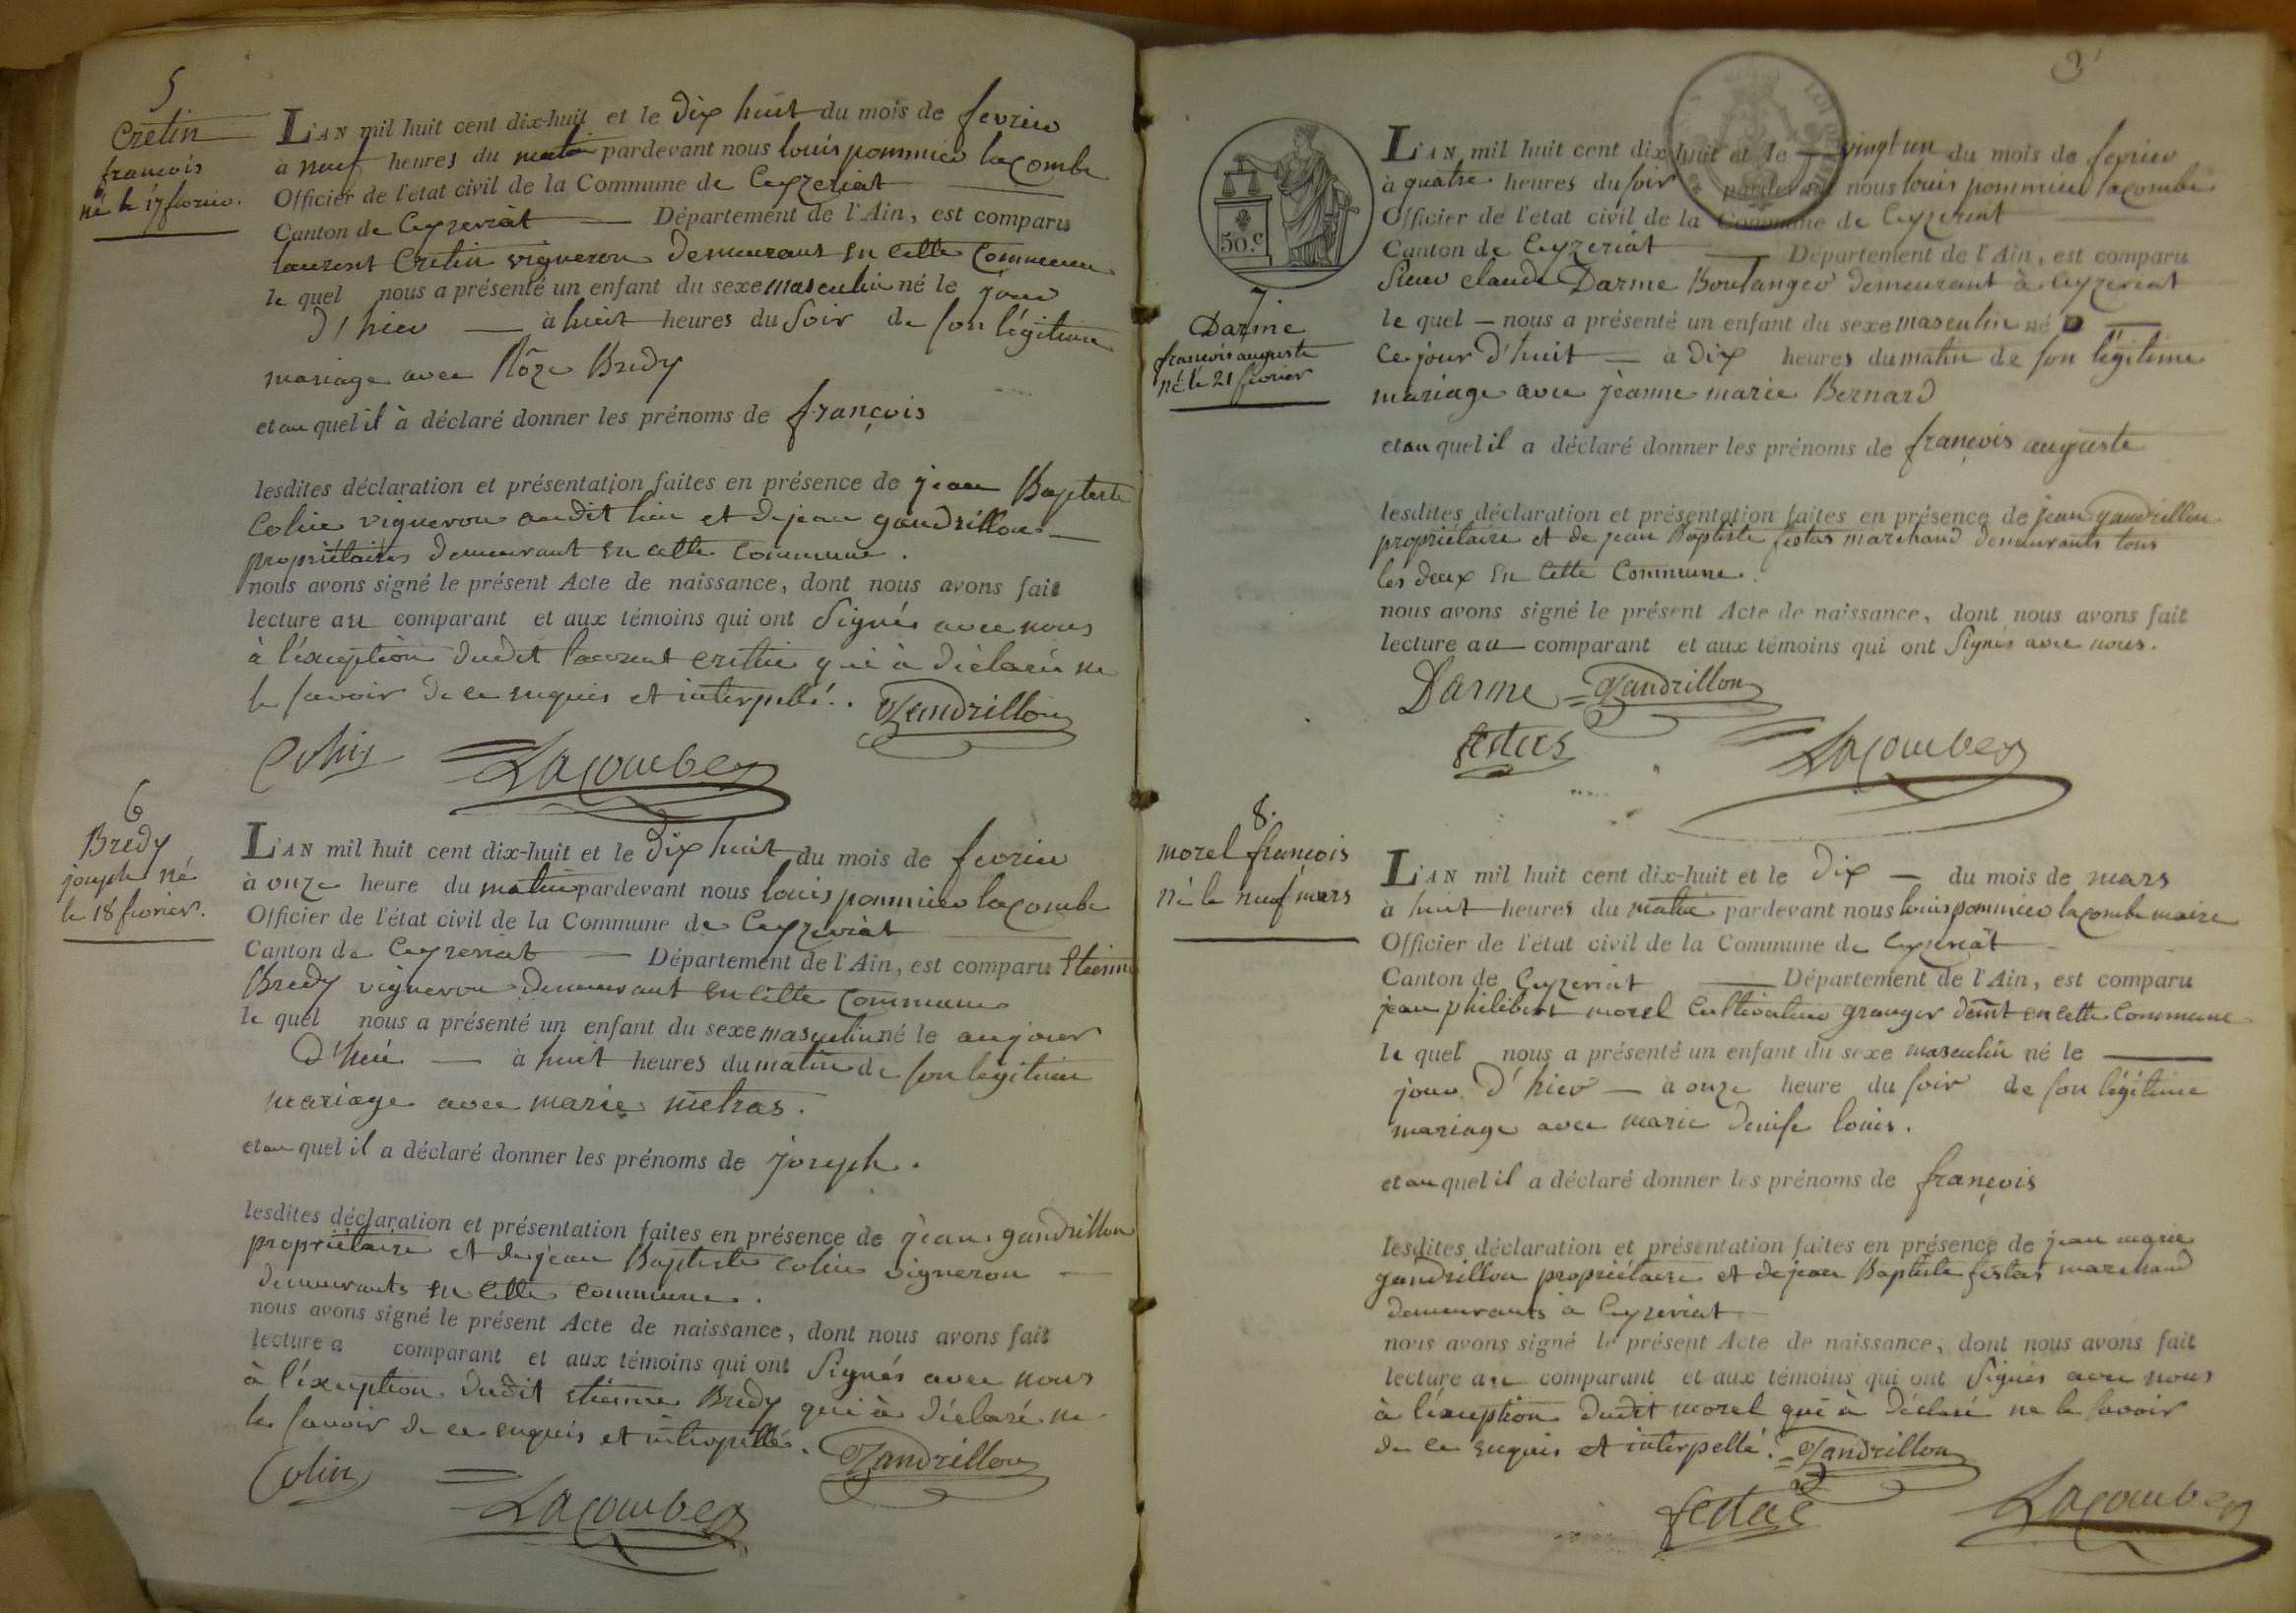 5
Cretin
françois
né le 17 fevrier.
L'AN mil huit cent dix-huit et le dix huit du mois de fevrier
à neuf heures du matin pardevant nous louis pommier lacombe
Officier de l'état civil de la Commune de Ceyzeriat
Canton de Ceyzeriat Département de l'Ain, est comparu
laurent Cretin vigneron demeurant en cette Commune
le quel nous a présenté un enfant du sexe masculin né le jour
d'hier à huit heures du soir de son légitime
mariage avec Rôze Bredy
et au quel il à déclaré donner les prénoms de françois
lesdites déclaration et présentation faites en présence de jean Baptiste
Colin vigneron audit lieu et de jean gandrillon
propriétaires demeurant en cette commune.
nous avons signé le présent Acte de naissance, dont nous avons fait
lecture au comparant et aux témoins qui ont signés avec nous
à l'éxception dudit laurent cretin qui à déclaré ne
le savoir de ce enquis et interpellé.
Gandrillon
Colin
Lacombe
6
Bredy
joseph né
le 18 fevrier.
L'AN mil huit cent dix-huit et le dix huit du mois de fevrier
à onze heure du matin pardevant nous louis pommier lacombe
Officier de l'état civil de la Commune de Ceyzeriat
Canton de Ceyzeriat Département de l'Ain, est comparu Etienne
Bredy vigneron demeurant en cette commune
le quel nous a présenté un enfant du sexe masculin né le aujour
d'hui à huit heures du matin de son legitime
mariage avec marie metras.
et au quel il a déclaré donner les prénoms de joseph.
lesdites déclaration et présentation faites en présence de jean gandrillon
propriétaire et de jean Baptiste colin vigneron
demeurants en cette commune.
nous avons signé le présent Acte de naissance, dont nous avons fait
lecture a comparant et aux témoins qui ont signés avec nous
à l'éxception dudit etienne Bredy qui à déclaré ne
le savoir de ce enquis et interpellé.
Gandrillon
Colin
Lacombe
3
50.c
7.
Darme
françois auguste
né le 21 fevrier
L'AN mil huit cent dix-huit et le vingt un du mois de fevrier
à quatre heures du soir pardevant nous louis pommier lacombe
Officier de l'état civil de la Commune de Ceyzeriat
Canton de Ceyzeriat Département de l'Ain, est comparu
sieur claude Darme Boulanger demeurant à Ceyzeriat
le quel nous a présenté un enfant du sexe masculin né
ce jour d'huit à dix heures du matin de son légitime
mariage avec jeanne marie Bernard
et au quel il a déclaré donner les prénoms de françois auguste
lesdites déclaration et présentation faites en présence de jean gandrillon
propriétaire et de jean Baptiste festas marchand demeurants tous
les deux en cette Commune.
nous avons signé le présent Acte de naissance, dont nous avons fait
lecture au comparant et aux témoins qui ont signés avec nous.
Darme Gandrillon
festas
Lacombe
8.
morel françois
né le neuf mars
L'AN mil huit cent dix-huit et le dix du mois de mars
à huit heures du matin pardevant nous louis pommier lacombe maire
Officier de l'état civil de la Commune de Ceyzeriat
Canton de Ceyzeriat Département de l'Ain, est comparu
jean philibert morel Cultivateur granger demt en cette Commune
le quel nous a présenté un enfant du sexe masculin né le
jour d'hier à onze heure du soir de son légitime
mariage avec marie denise louis.
et au quel il a déclaré donner les prénoms de françois
lesdites déclaration et présentation faites en présence de jean marie
gandrillon propriétaire et de jean Baptiste festas marchand
demeurants à Ceyzeriat
nous avons signé le présent Acte de naissance, dont nous avons fait
lecture au comparant et aux témoins qui ont signés avec nous
à l'éxception dudit morel qui à déclaré ne le savoir
de ce enquis et interpellé. Gandrillon
festas
Lacombe